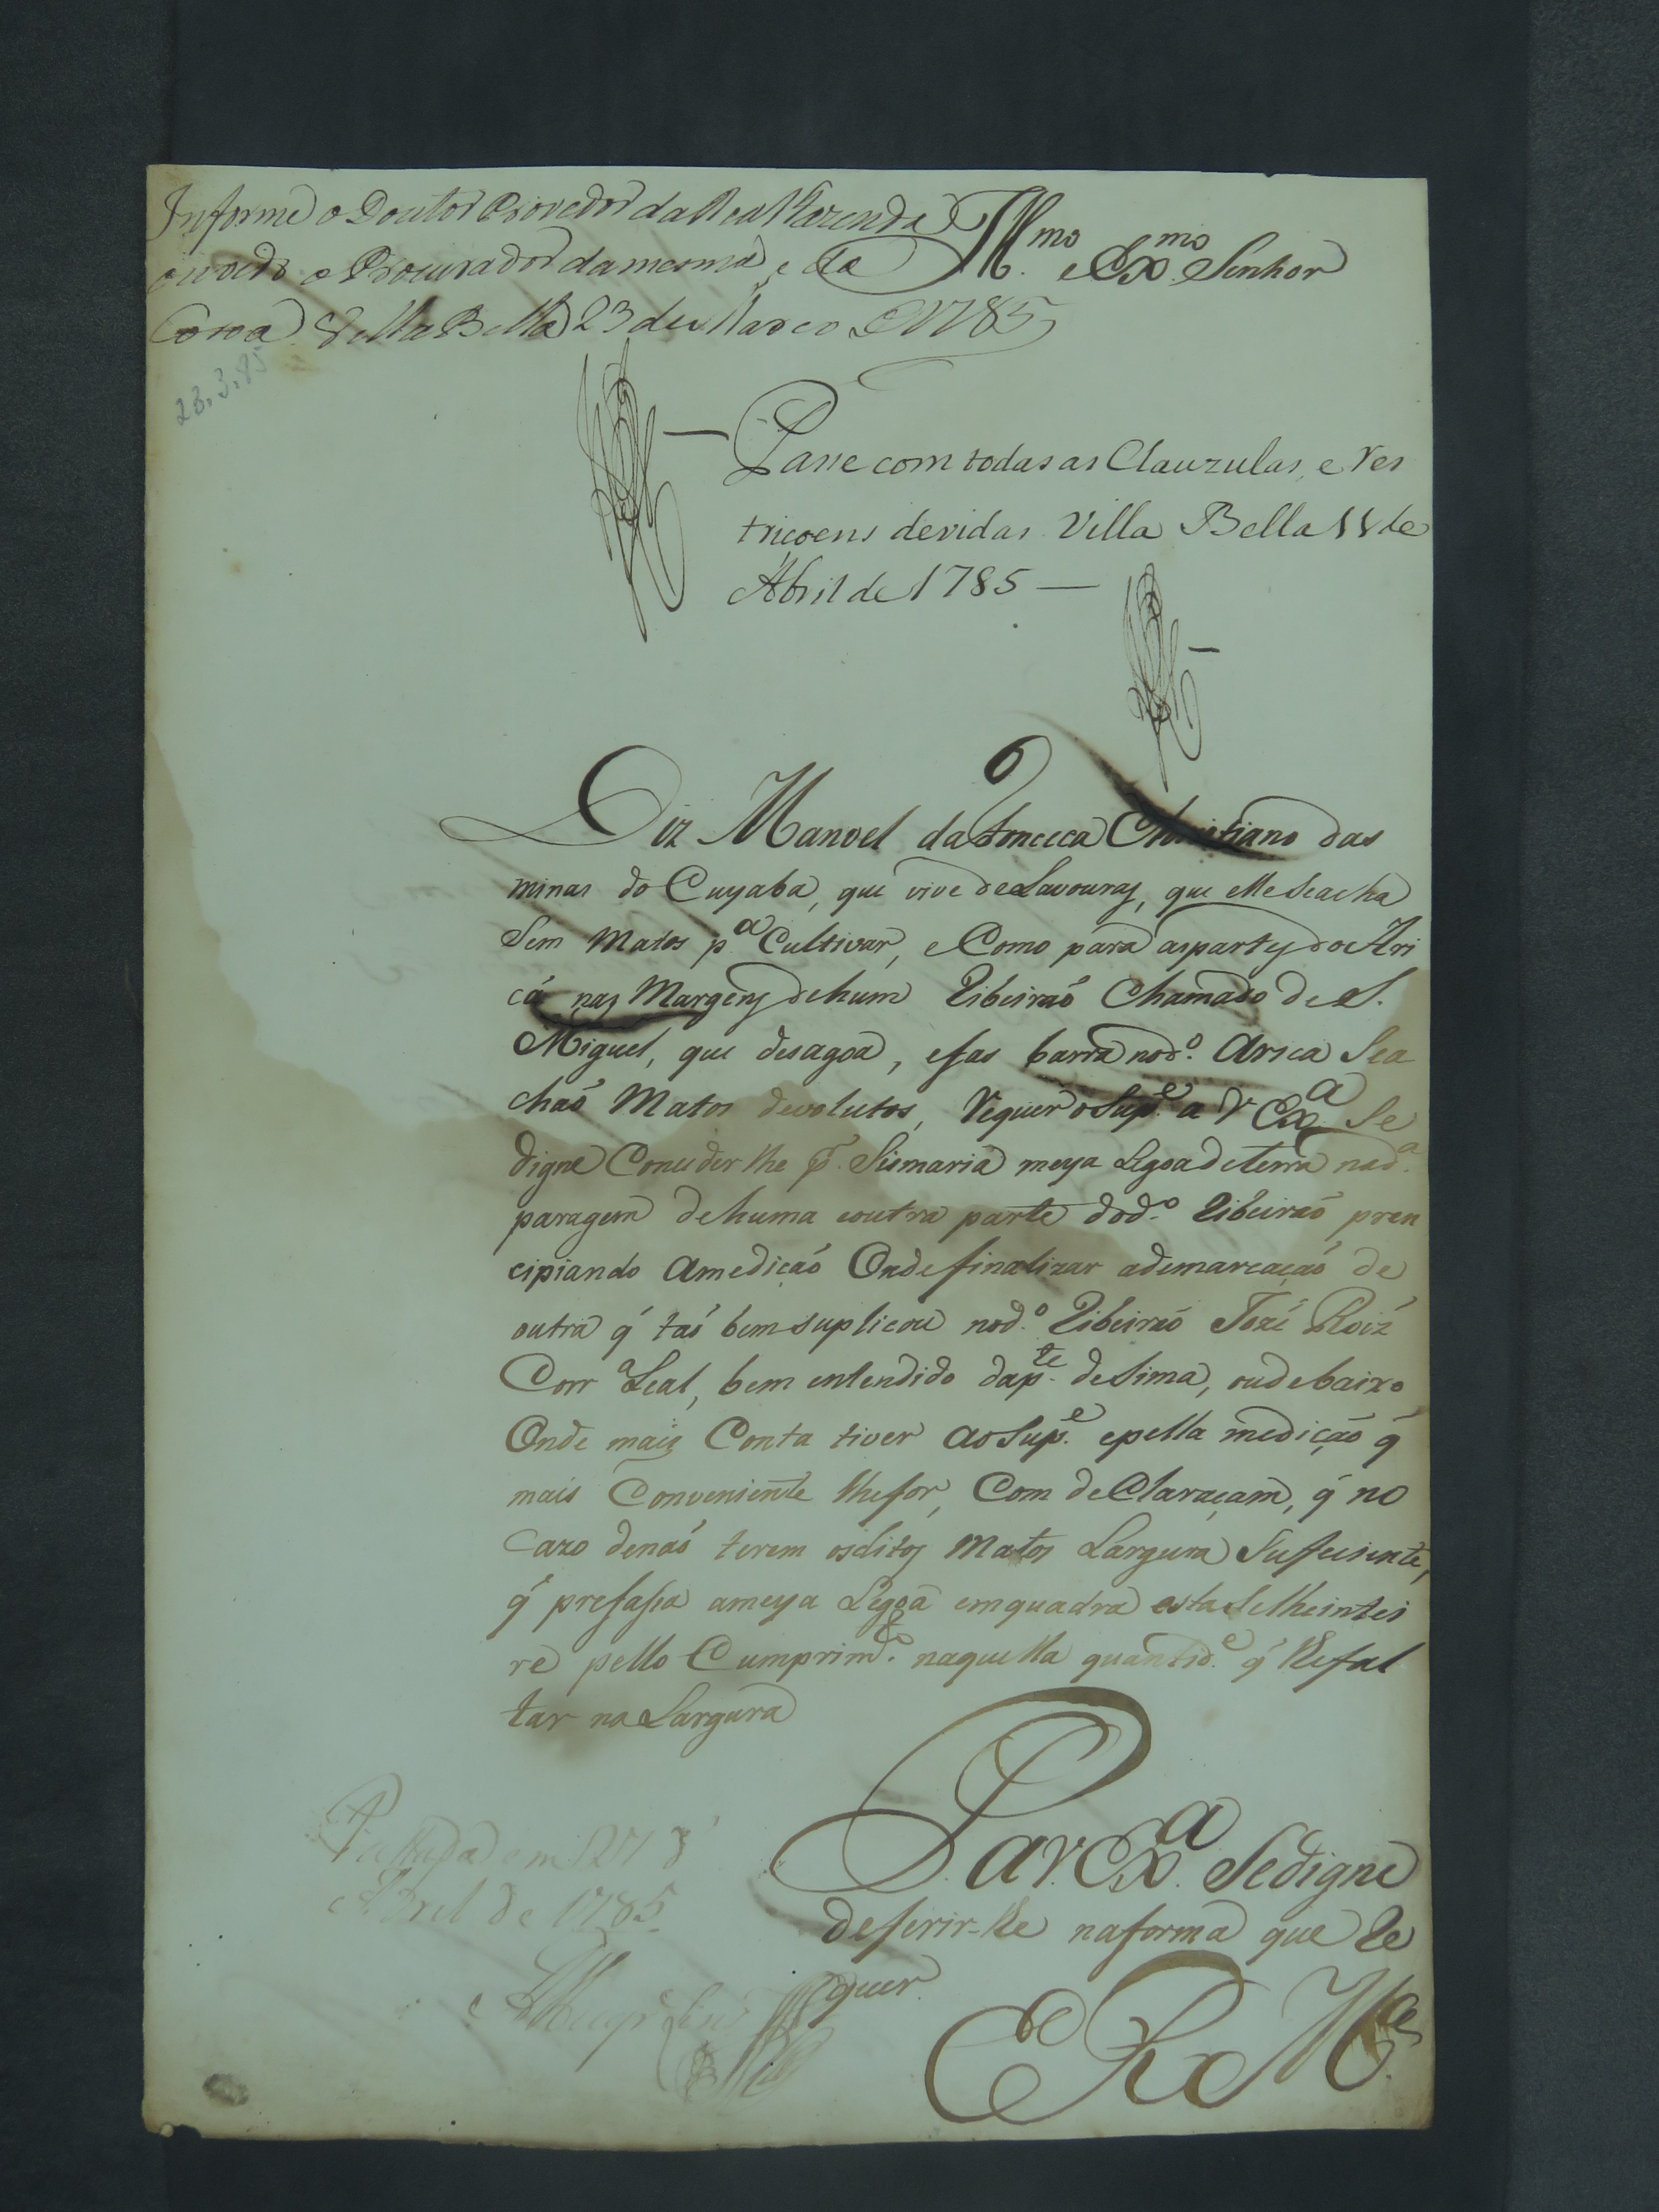 Informe o Doutor Provedor da Real Fazenda
ouvido o Procurador da mesma, e da
Coroa Villa Bella 23 de Março de 1785
Illmo. e Exmo. Senhor
23.3.85
Passe com todas as Clauzulas, e res
triçoens devidas Villa Bella 11 de
Abril de 1785
Diz Manoel da Fonceca Christiano das
minas do Cuyaba, que vive de Lavouras, que elle se acha
Sem Matos pa. Cultivar, e Como para as partes do Ari
cá nas Margens de hum Ribeiraõ Chamado de S.
Miguel, que desagoa, e fas barra no do. Arica Se a
chaõ Matos devolutos, Requer o Supe. a V Exa. Se
digne Conceder lhe p. Sismaria meya Legoa de terra na da.
paragem de huma e outra parte do do. Ribeiraõ pren
cipiando a mediçaõ Onde finalizar a demarcaçaõ de
outra q̃ taõ bem suplicou no do. Ribeiraõ Jozé Roiz
Corra Leal, bem entendido da pte. de Sima, ou de baixo
Onde mais Conta tiver ao Supe. e pella mediçaõ q̃
mais Conveniente lhe for, Com deClaraçam, q̃ no
Cazo de naõ terem os ditos Matos Largura Suficiente,
q̃ prefassa a meya Legoa em quadra esta Se lhe intei
re pello Cumprimto. naquella quantide. q̃ lhe fal
tar na Largura
P. a V. Exa. Se digne
deferir-lhe na forma que Re
quer
E R Mce.
Passada em 27 d
Abril de 1785.